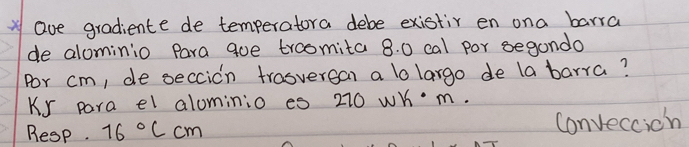 * Que gradiente de temperatura debe existir en una barra
de aluminio Para que trasmita 8.0 cal Por segundo
Por cm, de sección trasversan a lo largo de la barra?
Kr Para el aluminio es 210 wk·m.
Resp. 16 °C cm
Convección